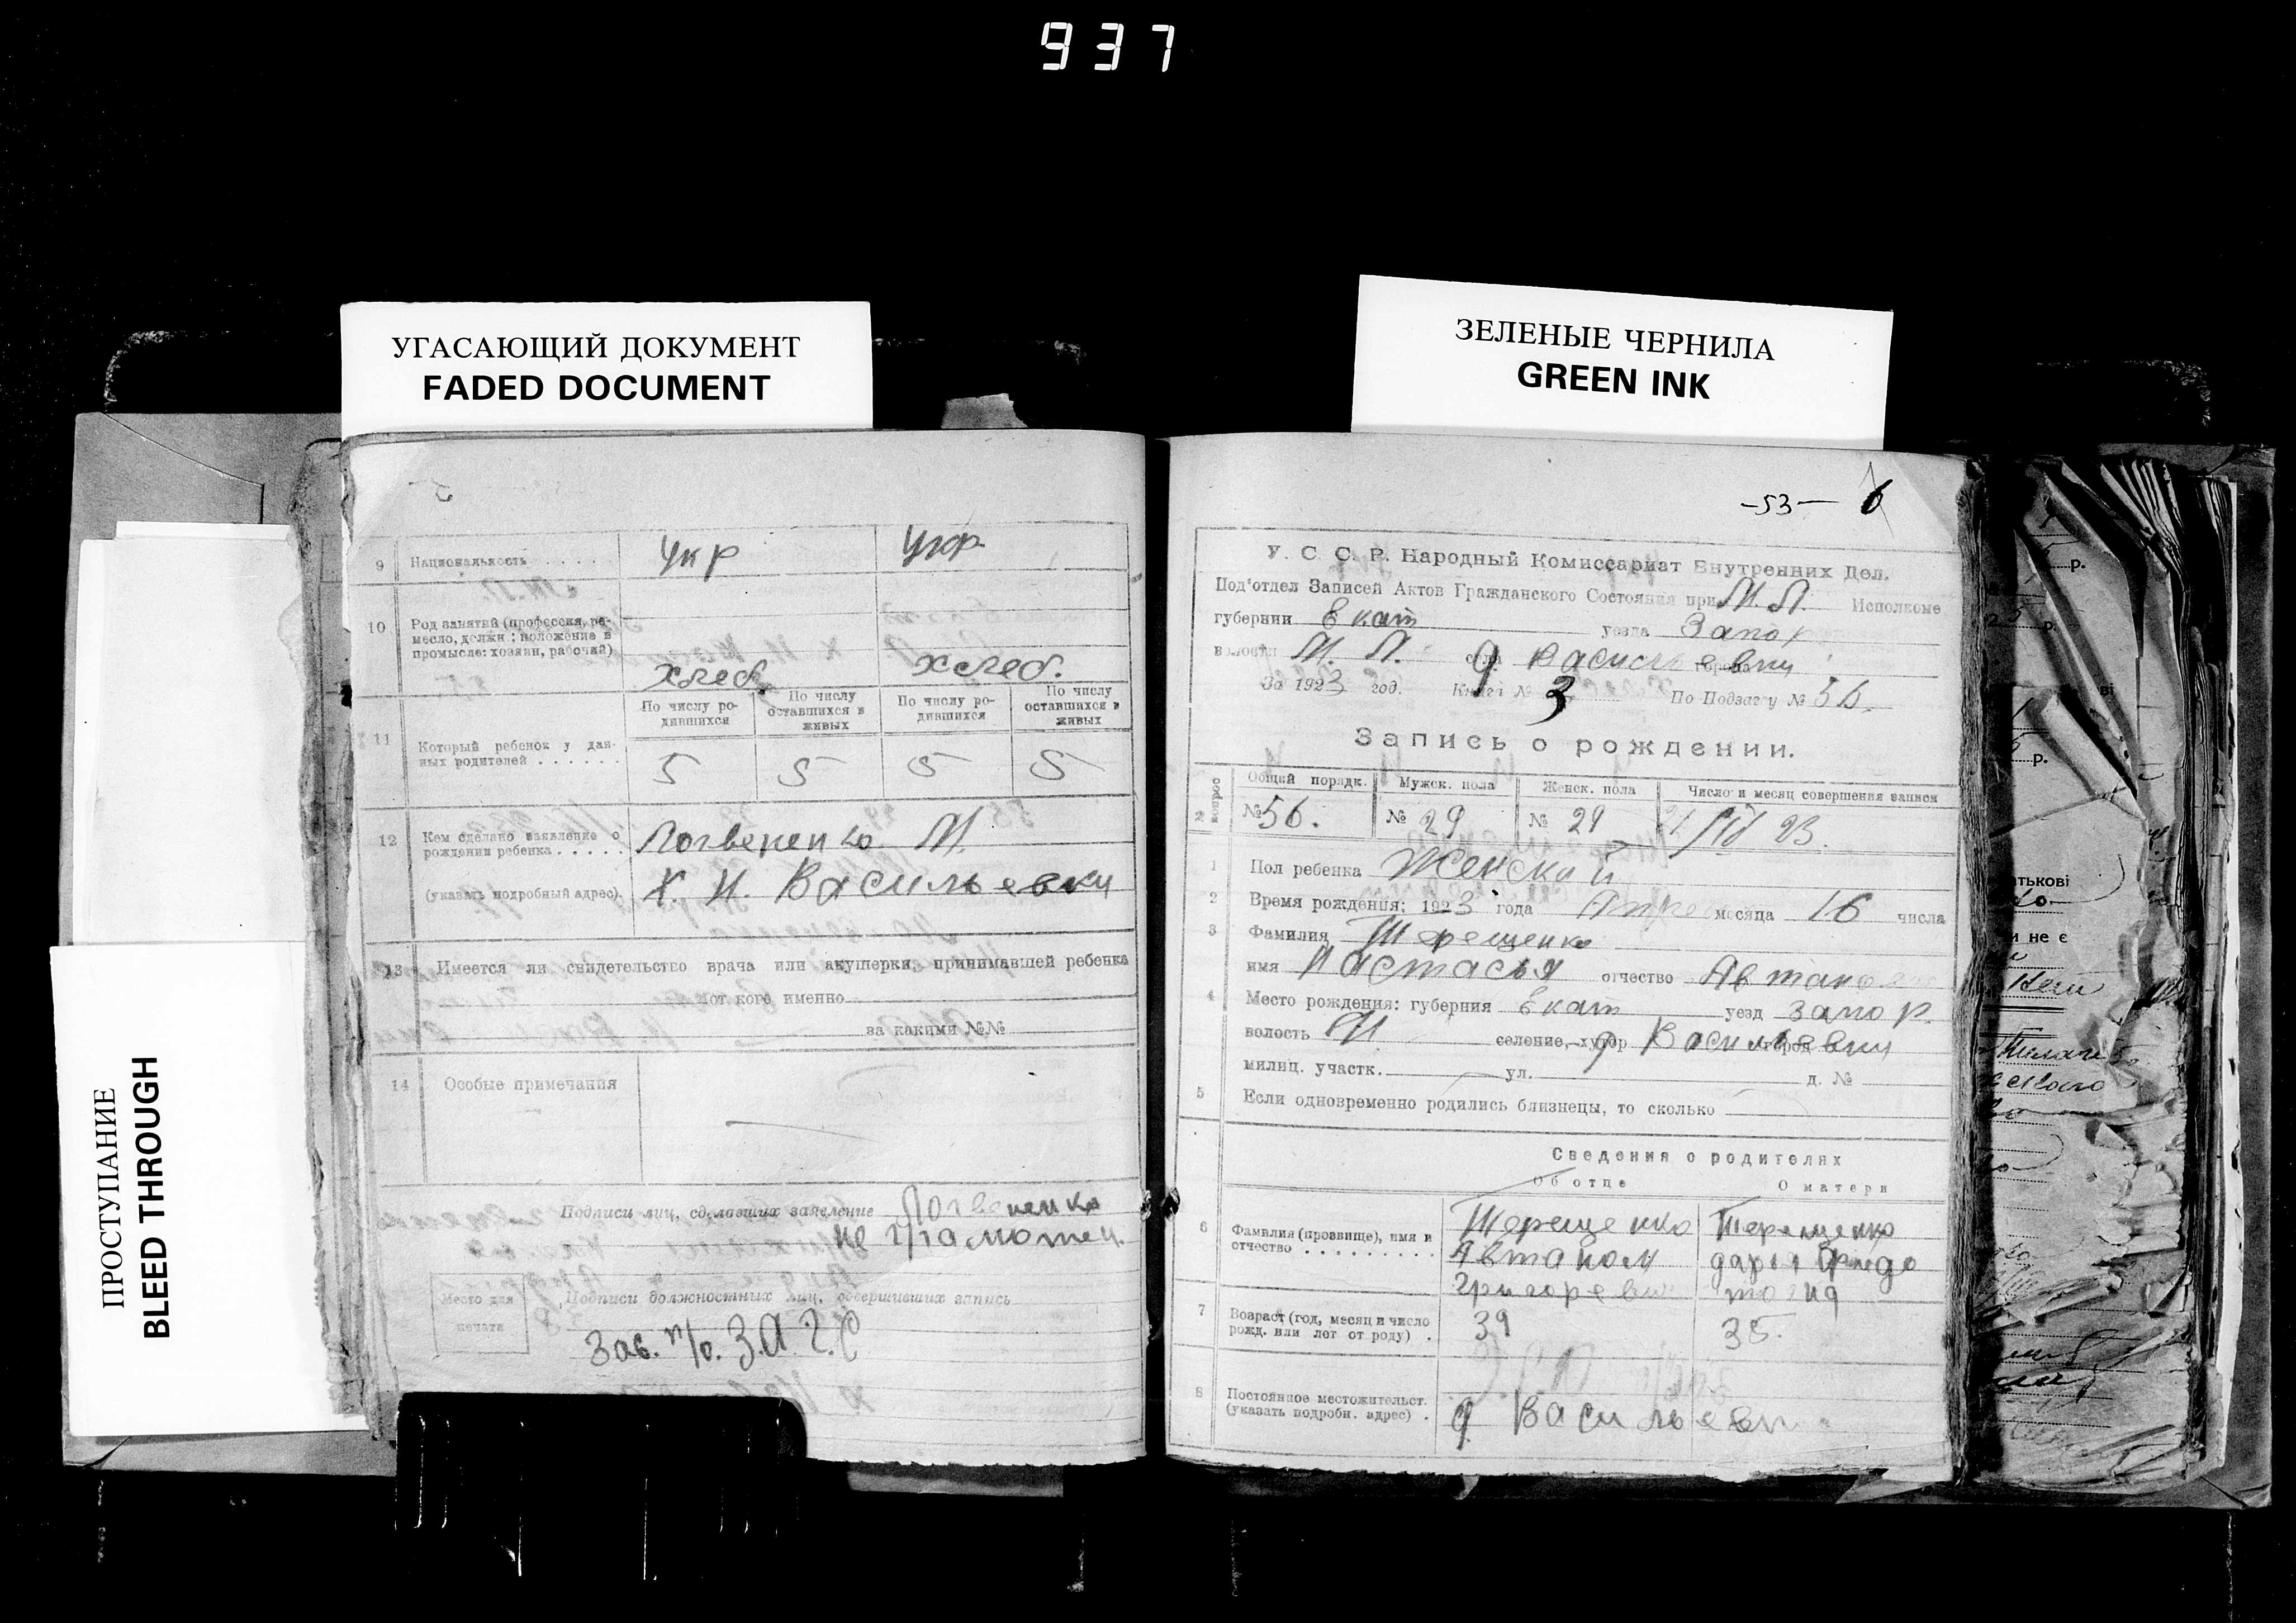 937
УГАСАЮЩИЙ ДОКУМЕНТ
FADED DOCUMENT
ЗЕЛЕНЫЕ ЧЕРНИЛА
GREEN INK
ПРОСТУПАНИЕ
BLEED THROUGH
9 Национальность . . . . . Укр Укр
10 Род занятий (профессия, ре-
месло, должн: положение в
промысле: хозяин, рабочий)
хлеб. хлеб.
По числу ро-
дившихся
По числу
оставшихся в
живых
По числу ро-
дившихся
По числу
оставшихся в
живых
11 Который ребенок у дан-
ных родителей . . . . . .
5 5 5 5
12 Кем сделано заявление о
рождении ребенка . . . . .
Логвененко М.
(указать подробный адрес). Х. Н. Васильевки
13 Имеется ли свидетельство врача или акушерки, принимавшей ребенка
от кого именно
за какими №№
14 Особые примечания
Подписи лиц, сделавших заявление Логвененко
не грамотен.
Место для
печати
Подписи должностных лиц, совершивших запись
Зав. п/о. З.А.Г.С
-53- 6
У. С. С. Р. Народный Комиссариат Внутренних Дел.
Под'отдел Записей Актов Гражданского Состояния при М. Л. Исполкоме
губернии Екат уезда Запор
волости М. Л. села д. Васильевки
За 1923 год. Книга № 3 По Подзагу № 56.
Запись о рождении.
№ вопрос
Общий порядк. Мужск. пола Женск. пола Число и месяц совершения записи
№ 56. № 29 № 29 23.
1 Пол ребенка Женский
2 Время рождения: 1923 года Апреля месяца 16 числа
3 Фамилия Терещенко
имя Настасья отчество
4 Место рождения: губерния Екат уезд Запор.
волость селение, хутор д Васильевки
милиц. участк. ул. д. №
5 Если одновременно родились близнецы, то сколько
Сведения о родителях
Об отце О матери
6 Фамилия (прозвище), имя и
отчество . . . . . . . . . .
Терещенко
Автаном
Григоревич
Терещенко
дарья
7 Возраст (год, месяц и число
рожд. или лет от роду) .
39 35.
8 Постоянное местожительст.
(указать подробн. адрес) .
д Васильевки